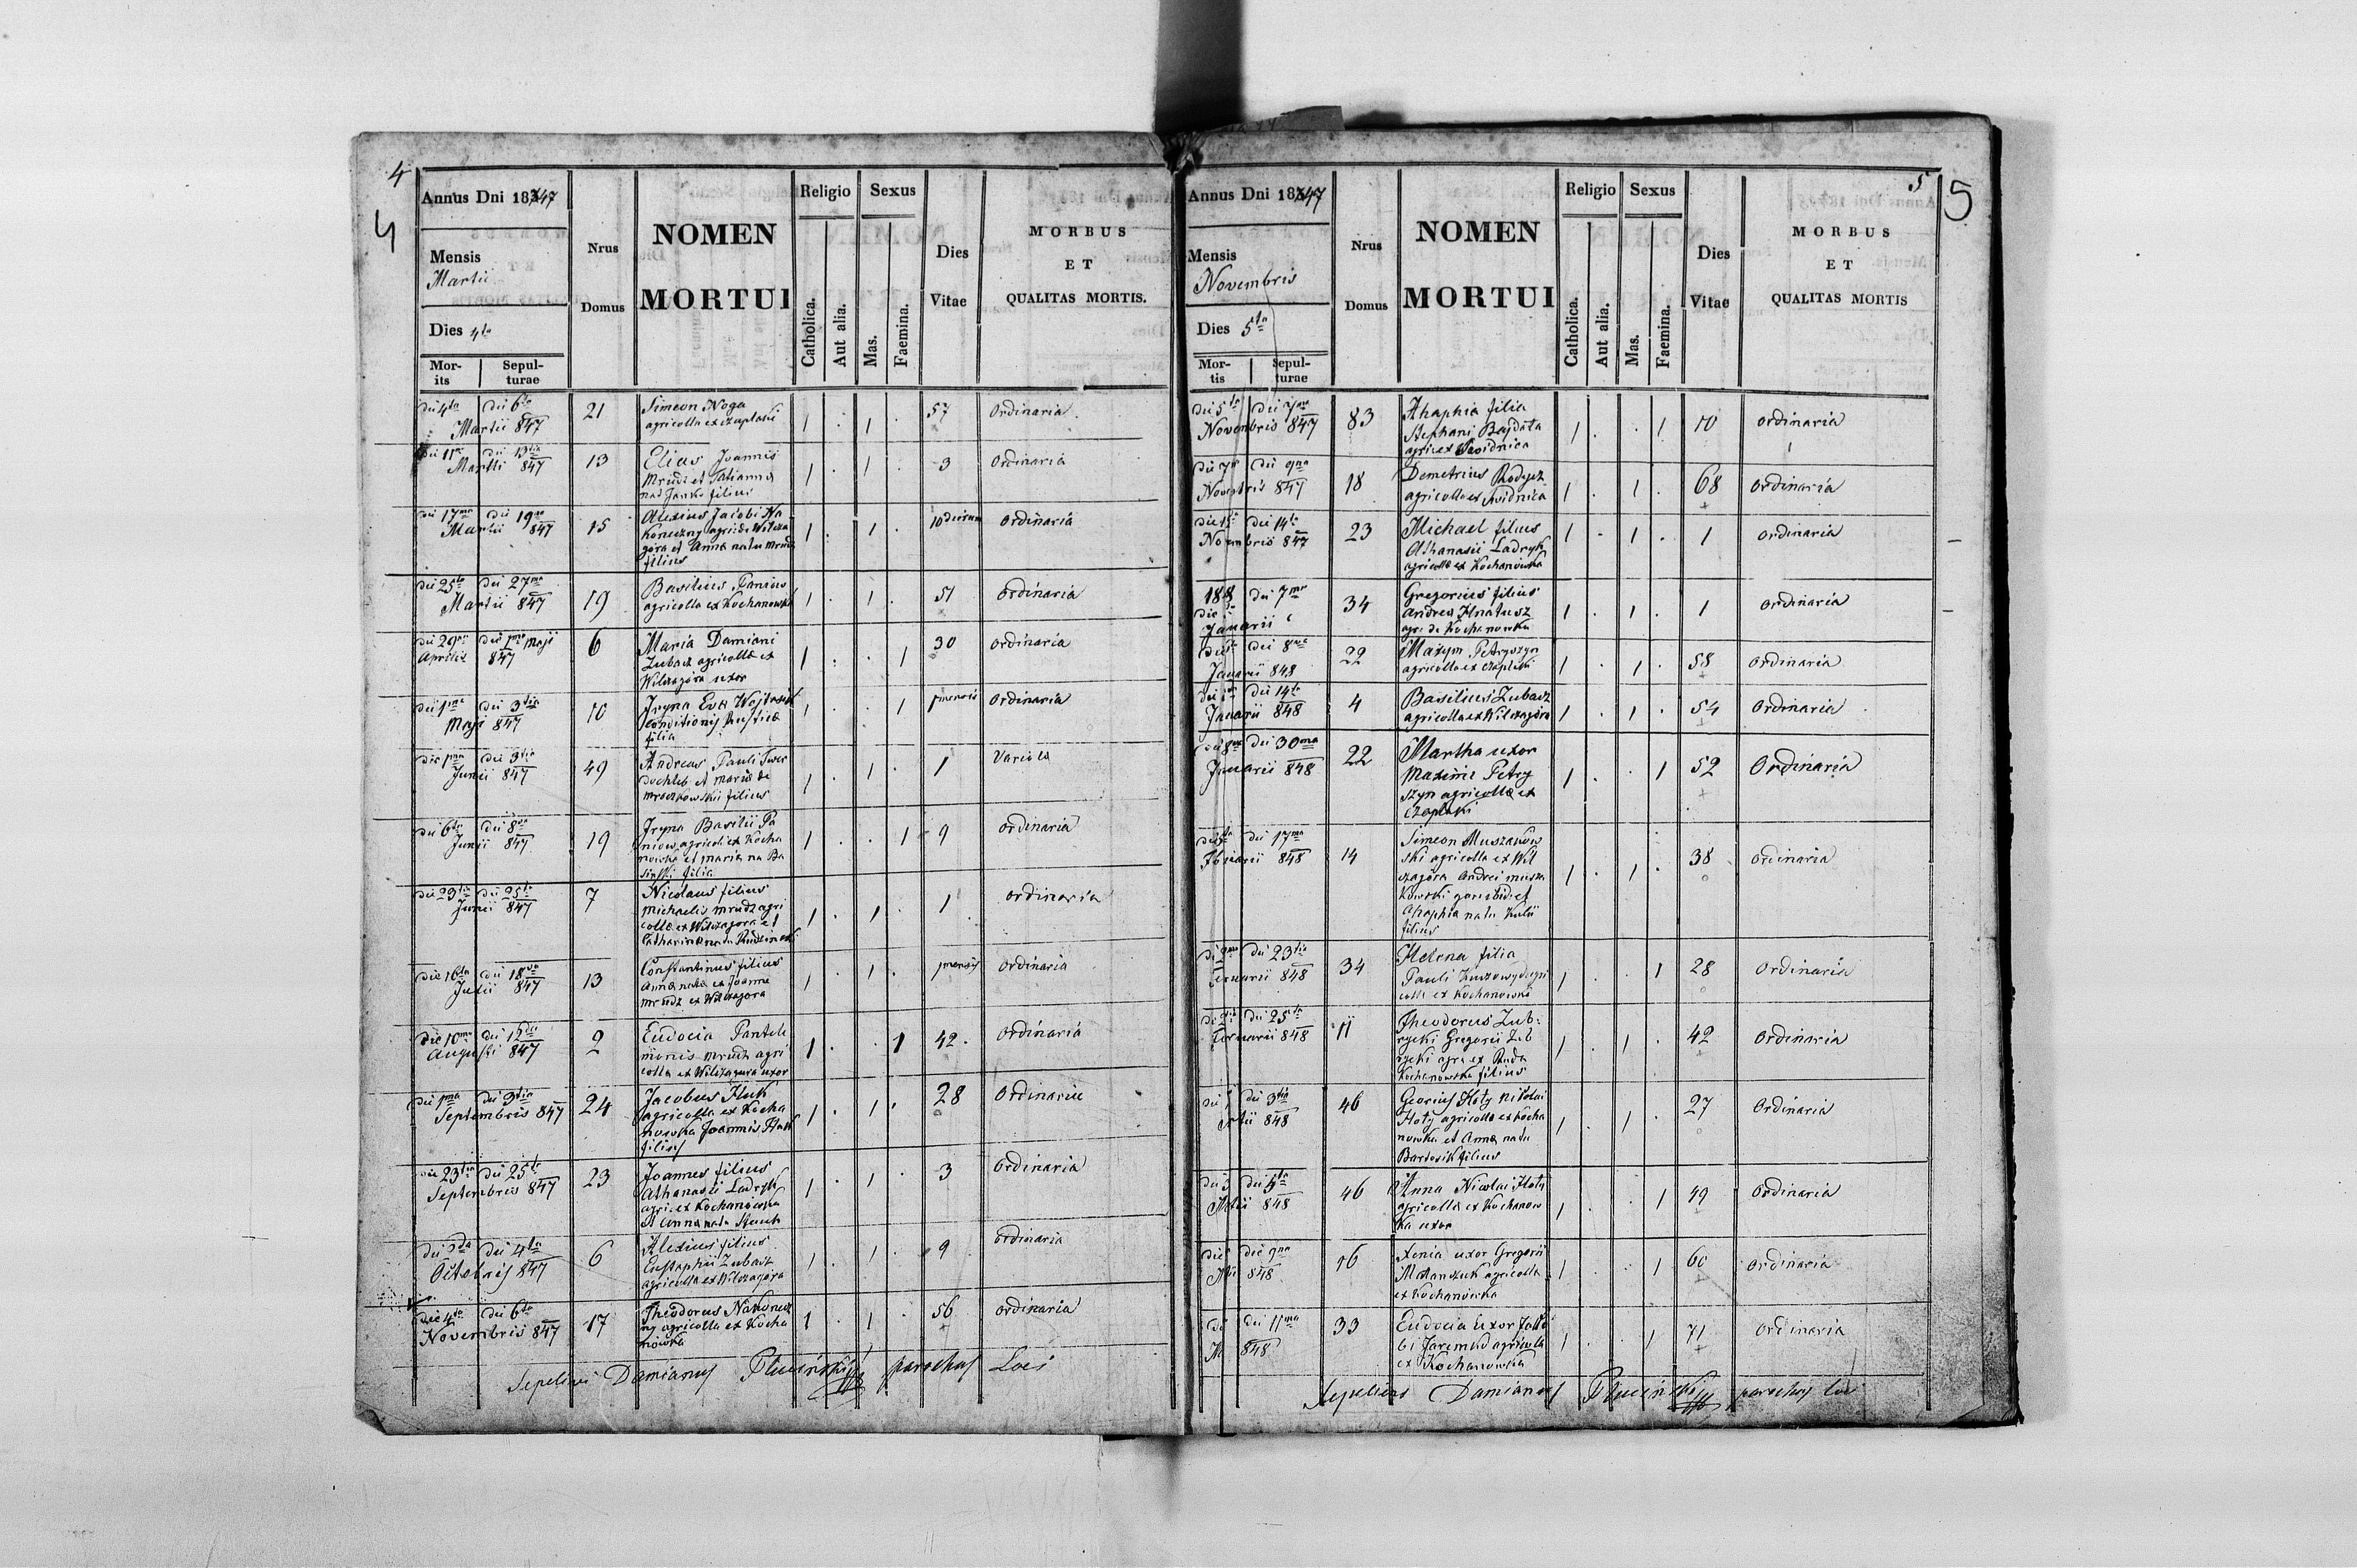 4
4
Annus Dni 1847
Mensis
Martii
Dies 4ta
Mor-
its
Sepul-
turae
Nrus
Domus
NOMEN
MORTUI
Religio
Catholica.
Aut alia.
Sexus
Mas.
Faemina.
Dies
Vitae
MORBUS
ET
QUALITAS MORTIS.
die 4ta die 6ta
Martii 847
21
Simeon Noga
agricolla ex Czaplaki
1 . 1 .
57
Ordinaria
die 11 die 13tia
Martii 847
13
Elias Joannis
Mrudz et Tatianna
filius
1 . 1 .
3
Ordinaria
die 17ma die 19na
Martii 847
15
Alexius Jacobi Na
koneczny agri: de Wilcza
góra et Anna natu Mrudz
filius
1 . 1 .
10 dierum
Ordinaria
die 25ta die 27ma
Martii 847
19
Basilius Paniow
agricolla ex Kochanowka
1 . 1 .
51
Ordinaria
die 29na die 1ma Maji
Aprilis 847
6
Maria Damiani
Zubacz agricolla ex
Wilczagóra uxor
1 . . 1
30
Ordinaria
die 1ma die 3tia
Maji 847
10
Iryna Eva
conditionis Rustica
filia
1 . . 1
mensis
Ordinaria
die 1ma die 3tia
Junii 847
49
Andreas Pauli Twer
dochleb et Maria de
Mroczkowskii filius
1 . 1 .
1
Variola
die 6ta die 8va
Junii 847
19
Iryna Basilii Pa
niow agricoli ex Kocha
nowka et Maria na Ba
filia
1 . . 1
9
Ordinaria
die 23tia die 25ta
Junii 847
7
Nicolaus filius
Michaelis Mrudz agri
colla ex Wilczagora et
Catharina natu
1 . 1 .
1
Ordinaria
die 16ta die 18va
Julii 847
13
Constantinus filius
Anna nata ex Joanne
Mrudz ex Wilczagora
1 . 1 .
mensis
Ordinaria
die 10ma die 12da
Augusti 847
2
Eudocia Pantele
imonis Mrudz agri
colla ex Wilczagura uxor
1 . . 1
42.
Ordinaria
die 1ma die 3tia
Septembris 847
24
Jacobus Huk
agricolla ex Kocha
nowka Joannis Huk
filius
1 . 1 .
28
Ordinariae
die 23tia die 25ta
Septembris 847
23
Joannes filius
Athanasii Ladryk
agri: ex Kochanowka
et Anna natu
1 . 1 .
3
Ordinaria
die 2da die 4ta
Octobris 847
6
Alexius filius
Eustaphii Zubacz
agricolla ex Wilczagóra
1 . 1 .
9
Ordinaria
die 4ta die 6ta
Novembris 847
17
Theodorus Nakonecz
ny agricolla ex Kocha
nowka
1 . 1 .
56
Ordinaria
Sepelivi Damianus Pluciński parochus Loci
5
5
Annus Dni 1847
Mensis
Novembris
Dies 5ta
Mor-
tis
Sepul-
turae
Nrus
Domus
NOMEN
MORTUI
Religio
Catholica.
Aut alia.
Sexus
Mas.
Faemina.
Dies
Vitae
MORBUS
ET
QUALITAS MORTIS
die 5ta die 7ma
Novembris 847
83
Ahaphia filia
Stephani Bajdala
agri: ex Swidnica
1 . . 1
10
Ordinaria
die 7ma die 9na
Novembris 847
18
Demetrius
agricolla ex Swidnica
1 . 1 .
68
Ordinaria
die 14ta
Novembris 847
23
Michael filius
Athanasii Ladryk
agricolla ex Kochanowka
1 . 1 .
1
Ordinaria
die 7ma
Januarii
34
Gregorius filius
Andrea Hnatusz
agri: de Kochanowka
1 . 1 .
1
Ordinaria
die 8va
Januarii 848
22
Maxym Petryszyn
agricolla ex Czaplaki
1 . 1 .
58
Ordinaria
die 14ta
Januarii 848
4
Basilius Zubacz
agricolla ex Wilczagóra
1 . 1 .
54
Ordinaria
die 30ma
Januarii 848
22
Martha uxor
Maximi Petry
szyn agricolla ex
Czaplaki
1 . . 1
52
Ordinaria
die 17ma
848
14
Simeon Muszakow
ski agricolla ex Wil
czagóra Andrei Musza
kowski et
Ahaphia natu
filius
1 . 1 .
38
Ordinaria
die 23tia
848
34
Helena filia
Pauli agri
colla ex Kochanowka
1 . . 1
28
Ordinaria
die 25ta
848
11
Theodorus Zub:
rycki Gregorii Zub
rycki agri: ex Ruda
Kochanowska filius
1 . 1 .
42
Ordinaria
die 3tia
848
46
Georgius Hoty Nikolai
Hoty agricolla ex Kocha
nowka et Anna natu
Bartosik filius
1 . 1 .
27
Ordinaria
die 5ta
848
46
Anna Nicolai Hoty
agricolla ex Kochanow
ka uxor
1 . . 1
49
Ordinaria
die 9na
848
16
Xenia uxor Gregorii
agricolla
ex Kochanowka
1 . . 1
60
Ordinaria
die 11ma
848
33
Eudocia uxor Jako
bi Jaremko agricolla
ex Kochanowka
1 . . 1
71
Ordinaria
Sepelivi Damianus Pluciński parochus Loci